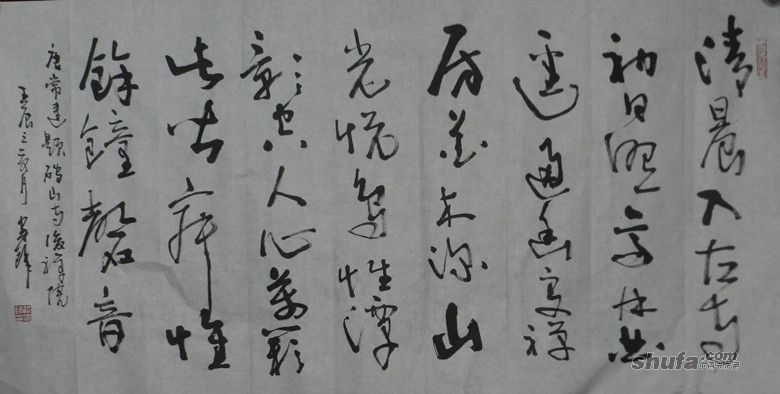 清晨入古寺
初日照高林曲
逕通幽處禅
房花木深山
光悦鸟性潭
影空人心萬籁
此皆寂惟
餘鐘磬音
唐常建题破山寺後禅院
壬辰之六月
shufa.com